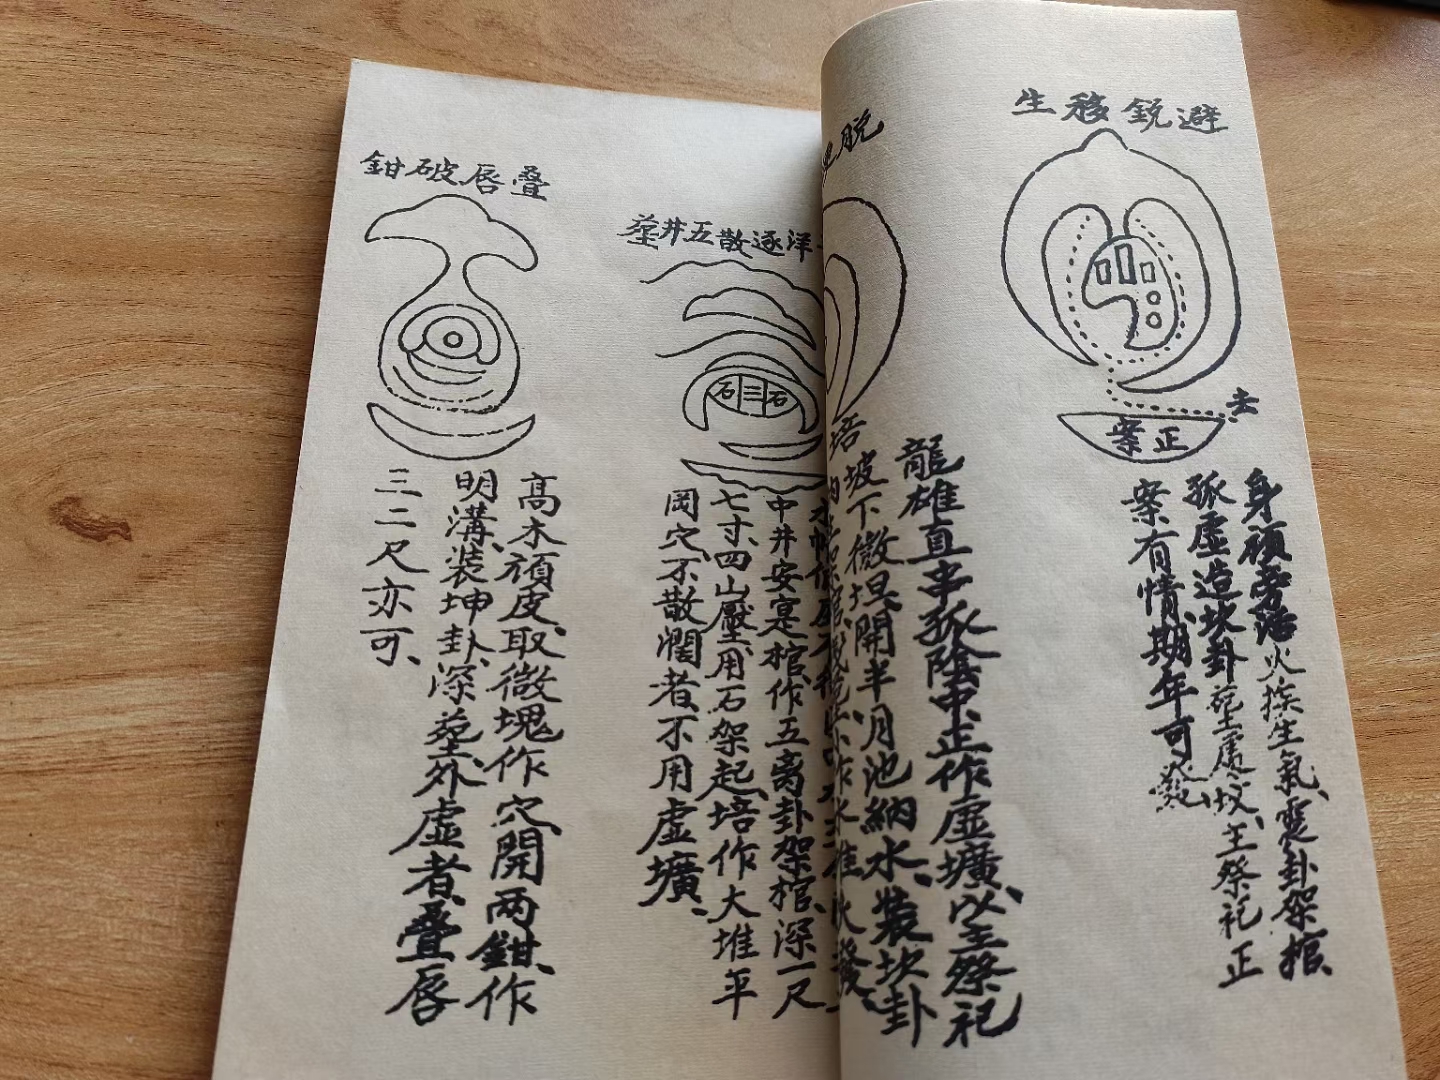 避銳移生
去
正案
身頑旁落火挨生氣、震卦架棺、
孤虛造坎卦茔虚坟、主祭祀正
案有情、期年可發、
脫
龍雄直串孤陰中正作虛壙、以主祭祀
坡下微坦、開半月池納水、裝坎卦
培
洋逐散五井塟
石三石
中井安寔棺作五离卦架棺、深一尺
七寸、四山壓、用石架起、培作大堆、平
岡穴、不散濶者、不用虛壙、
叠唇破鉗
高木頑皮、取微塊作穴、開兩鉗、作
明溝、裝坤卦、深塟外虛者、叠唇
三二尺亦可、